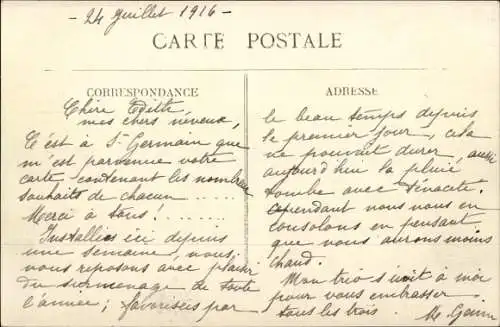 - 24 Juillet 1916 -
CARTE POSTALE
CORRESPONDANCE
Chère Edith,
mes chers neveux,
C'est à St Germain que
m'est parvenue votre
carte contenant les nombreux
souhaits de chacun .....
Merci à tous! .....
Installées ici depuis
une semaine, nous
nous reposons avec plaisir
du surmenage de toute
l'année; favorisées par
ADRESSE
le beau temps depuis
le premier jour, cela
ne pouvait durer, aussi
aujourd'hui la pluie
tombe avec ténacité.
Cependant nous nous en
consolons en pensant
que nous aurons moins
chaud.
Mon trio s'unit à moi
pour vous embrasser
tous les trois. M.